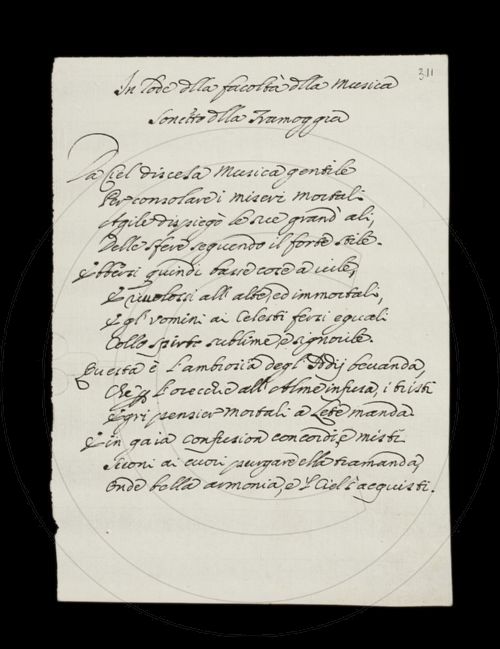 311
In lode dlla facoltà dlla Musica
Sonetto dlla Tramoggia
Da Ciel discesa Musica gentile
Per consolare i miseri mortali
Agile dispiegò le sue grand' ali,
Delle sfere seguendo il forte stile.
E ttersi quindi basse cose a vile,
E rivolossi all' alte, ed immortali,
E gl' vomini ai Celesti fersi eguali
Collo spirto sublime, e signorile.
Questa è l'ambrosia degl' Ddij bevanda,
Che p l'orecchie all' Alme infusa, i tristi
Egri pensier mortali a Lete manda
E in gaia confusion concordi, e misti
Suoni ai cuori purgare ella tramanda,
Onde bella armonia, e 'l Ciel s'acquisti.